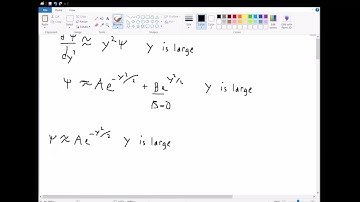 d²ψ/dy² ≈ y²ψ y is large
ψ ≈ Ae^(-y²/2) + Be^(y²/2) y is large
B=0
ψ ≈ Ae^(-y²/2) y is large